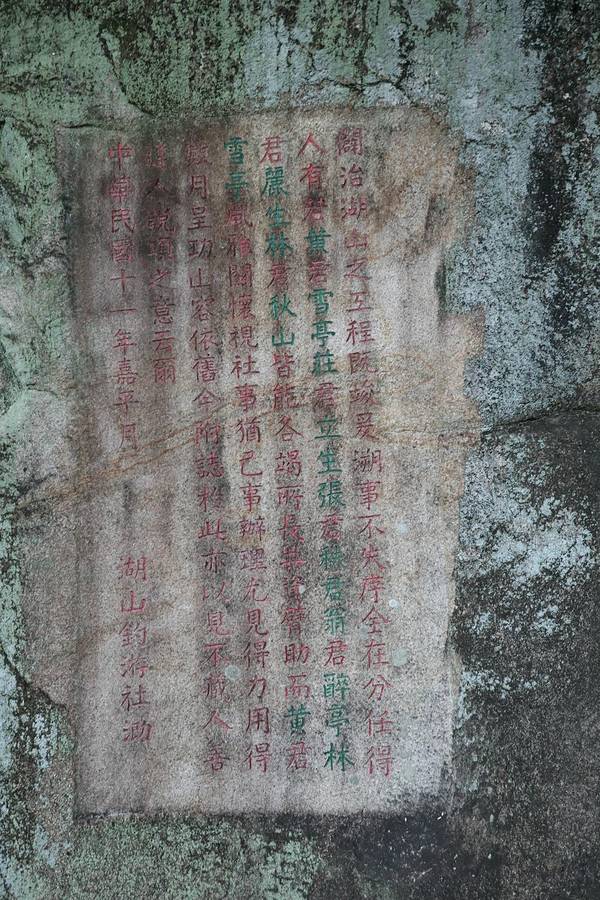 治湖山之工程既竣爰溯事不失序全在分任得
人有若黃君雪亭莊君立生張君君翁君醉亭林
君麗生林君秋山皆能各竭所長共臂助而黃君
雪亭風雅關懷視社事猶己事辦理尤見得力用得
月呈功山容依舊今附誌於此亦以見不藏人善
逢人說項之意云爾
中華民國十一年嘉平月 湖山釣游社泐